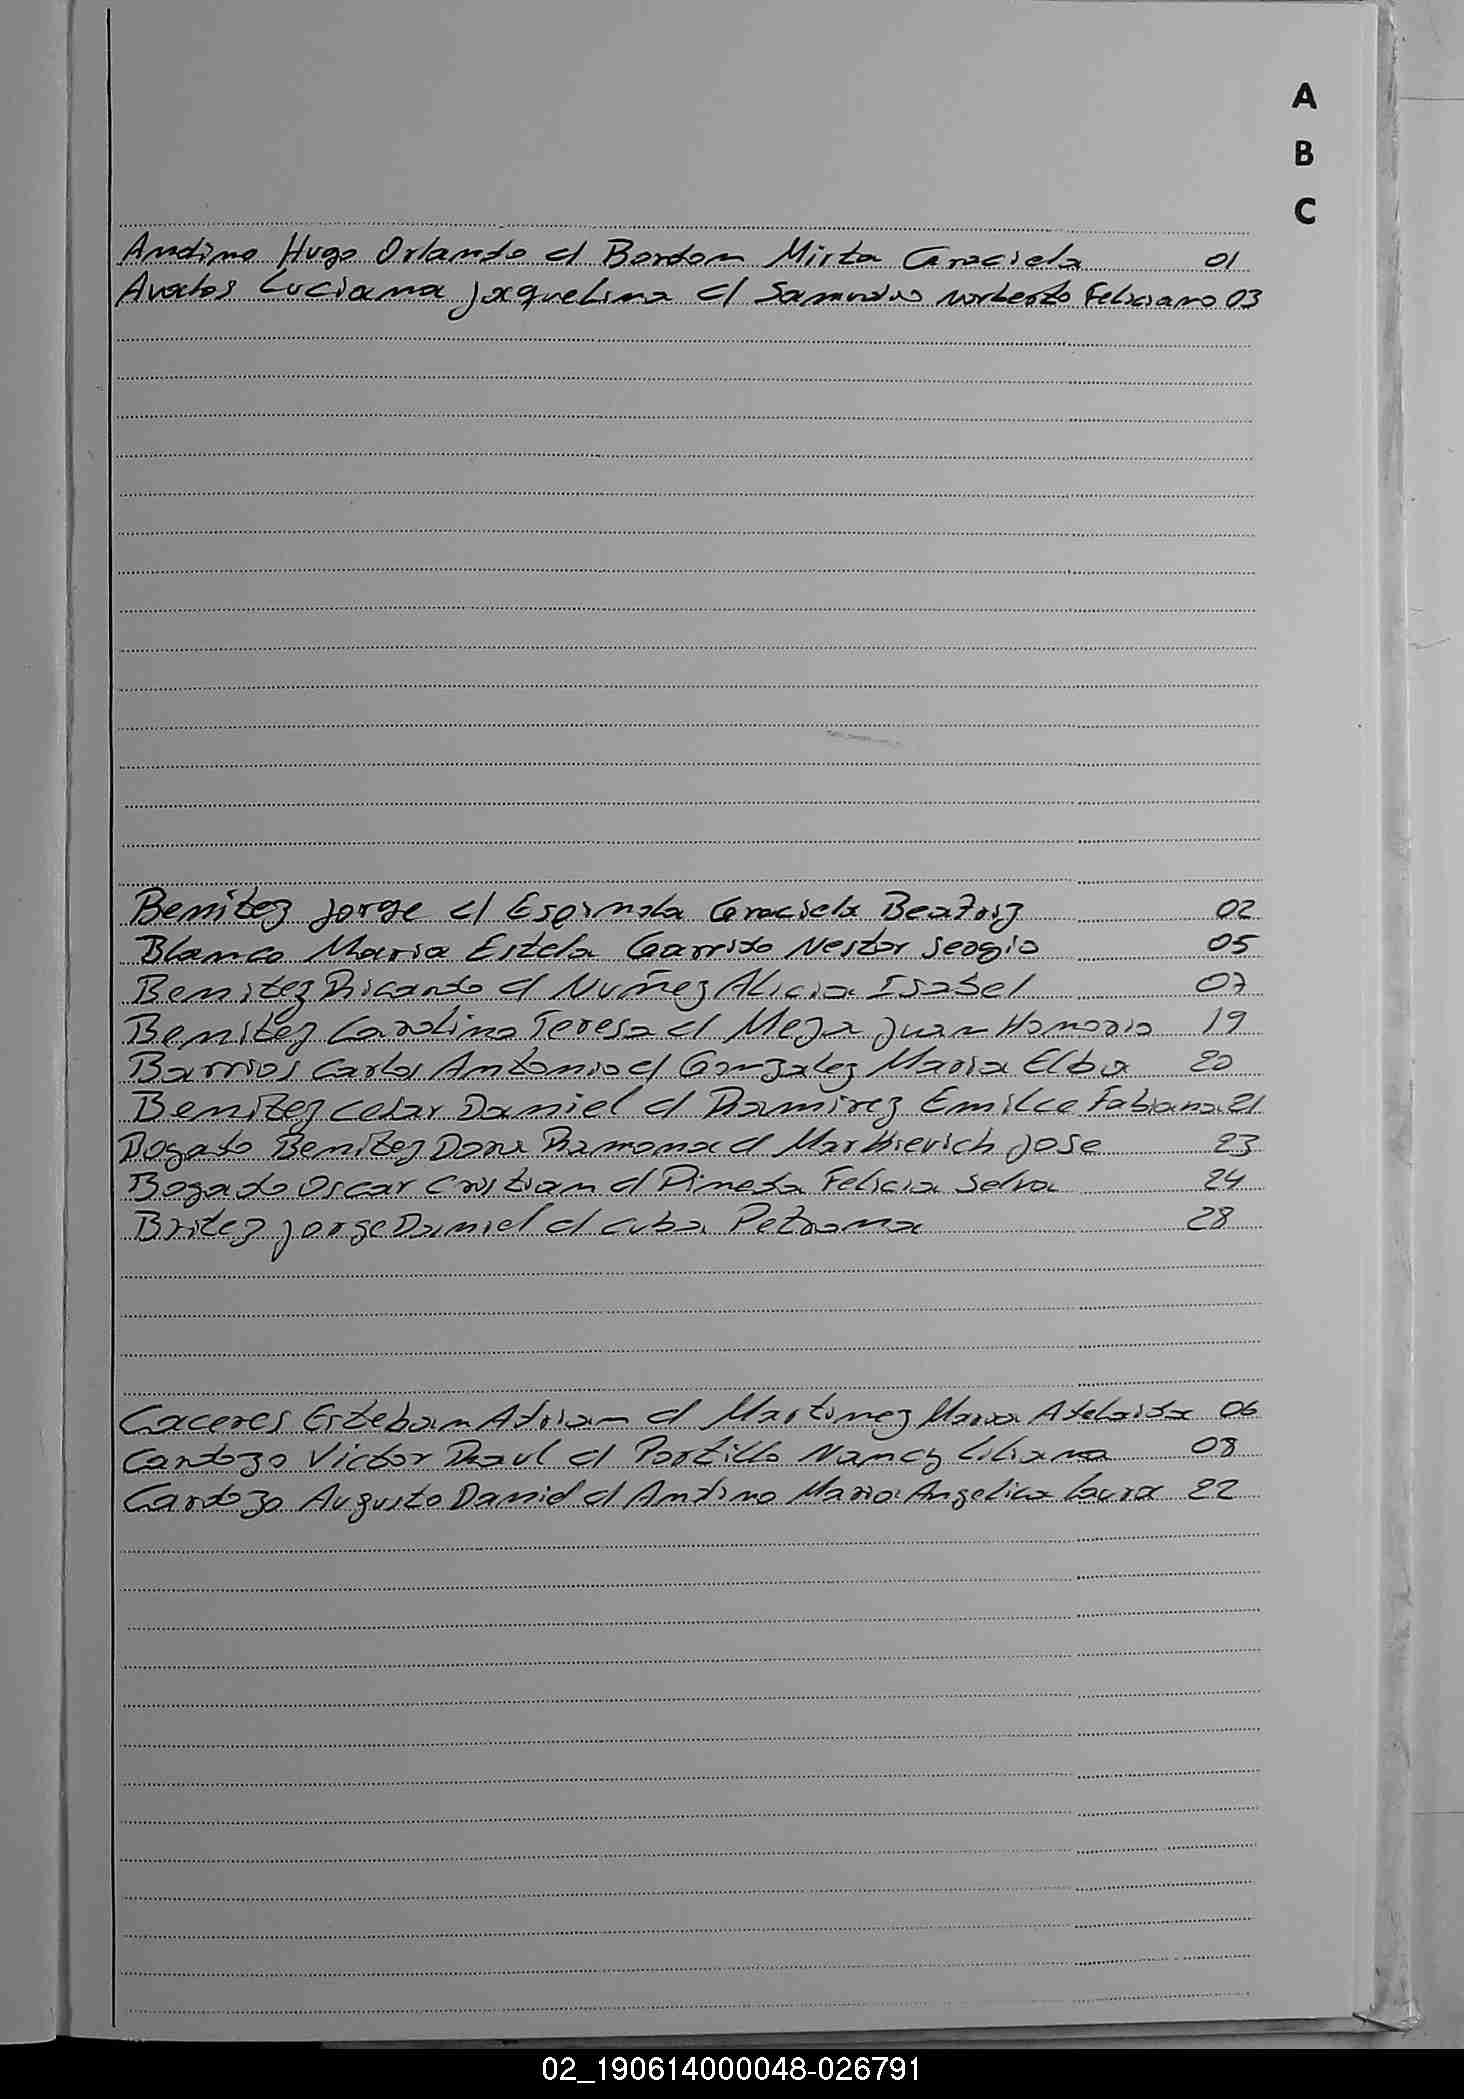 A
B
C
Andino Hugo Orlando c/ Bordon Mirta Graciela 01
Avalos Luciana Jaquelina c/ Samudio Norberto Feliciano 03
Benitez Jorge c/ Espindola Graciela Beatriz 02
Blanco Maria Estela Garrido Nestor Sergio 05
Benitez Ricardo c/ Nuñez Alicia Isabel 07
Benitez Carolina Teresa c/ Meza Juan Honorio 19
Barrios Carlos Antonio c/ Gonzalez Maria Elba 20
Benitez Cesar Daniel c/ Ramirez Emilce Fabiana 21
Bogado Benitez Ramona c/ Jose 23
Bogado Oscar Cristian c/ Pineda Felicia Selva 24
Britez Jorge Daniel c/ Cuba Petrona 28
Caceres Esteban Adrian c/ Martinez Maria Adelaida 06
Cardozo Victor Raul c/ Portillo Nancy Liliana 08
Cardozo Augusto Daniel c/ Andino Maria Angelica Laura 22
02_190614000048-026791